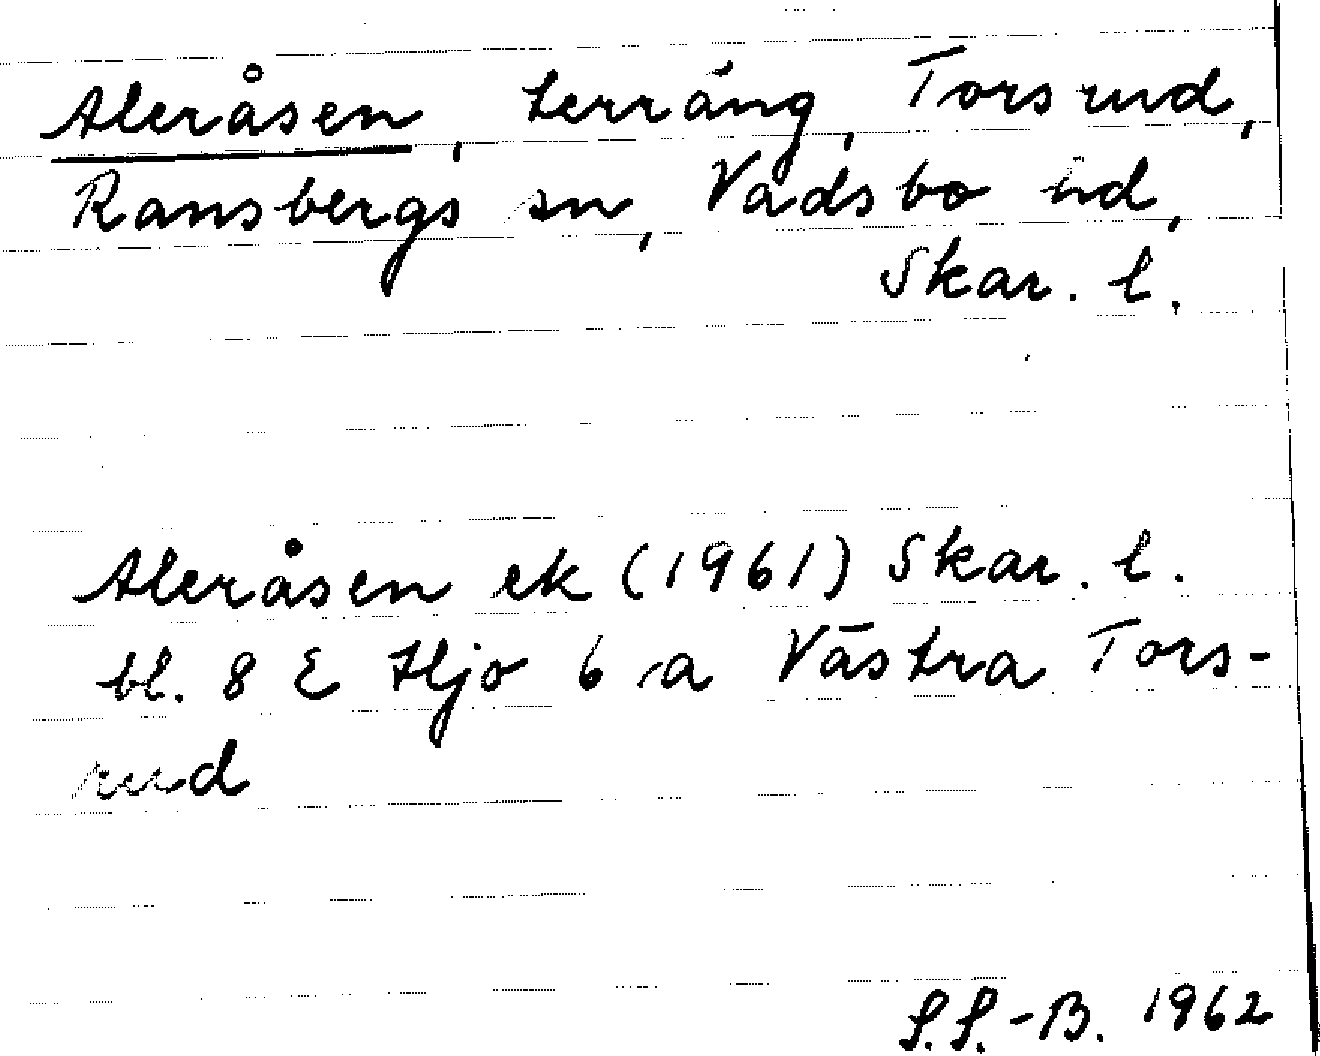 Aleråsen, terräng, Torsrud,
Ransbergs sn, Vadsbo hd,
Skar. l.
Aleråsen ek (1961) Skar. l.
bl. 8 E Hjo 6 a Västra Tors-
rud
S.S.-B. 1962